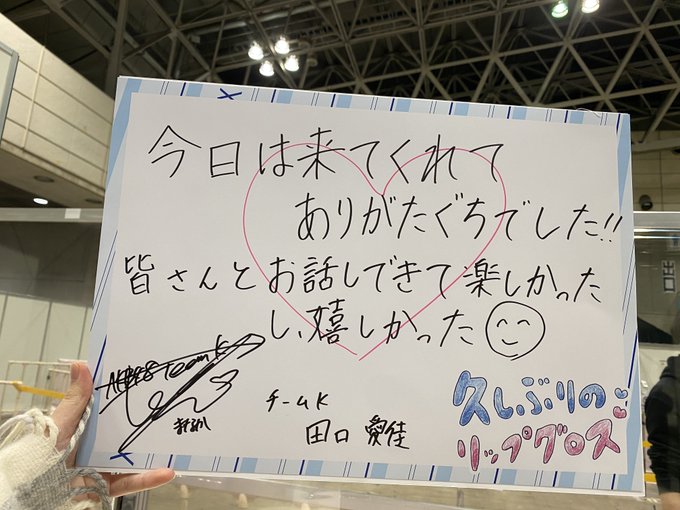 今日は来てくれて
ありがたぐちでした!!
皆さんとお話しできて楽しかった
し、嬉しかった
AKB48 Team K
チームK
田口 愛佳
久しぶりの
リップグロス